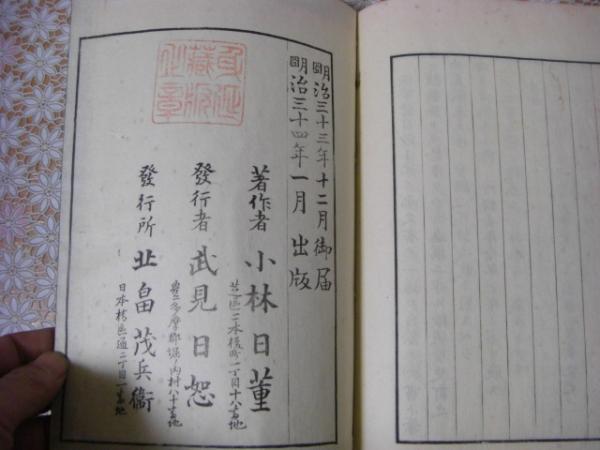 明治三十三年十二月御届
明治三十四年一月出版
著作者 小林日董
芝區二本榎町一丁目十八番地
發行者 武見日恕
豊多摩郡堀内村八十番地
發行所 北畠茂兵衞
日本橋區通一丁目一番地
身延
藏版
之章